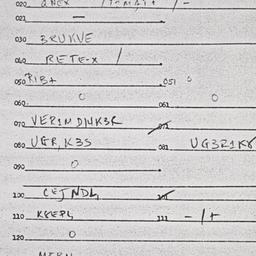 020
021 —
030 3RUKVE
040 RETE-X /
050 RIB+ 051 0
060 0 061 0
070 VER1NDHK3R 071
080 UGR, K3S 081 UG3R1K8
090 0
100 CEJNDL 101
110 KGEPL 111 - / +
120 0